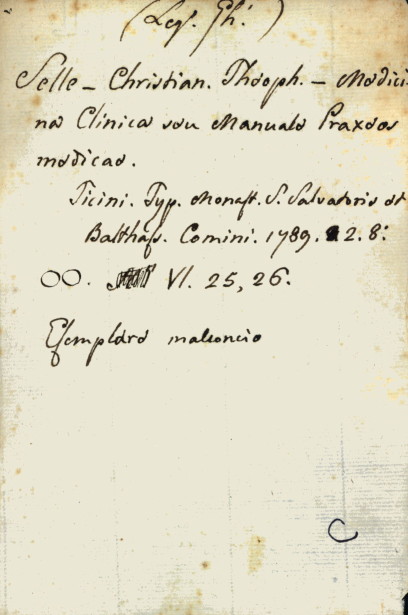 (Leg. Gh.)
Selle - Christian. Theoph. - Medici-
na Clinica seu Manuale Praxeos
medicae.
Ticini. Typ. Monast. S. Salvatoris et
Balthass. Comini. 1789. 2. 8:
OO. VI. 25, 26.
Esemplare malconcio
C